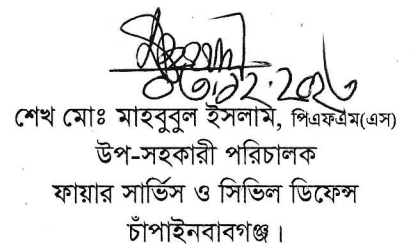 ০৩.১২.২০২৩
শেখ মোঃ মাহবুবুল ইসলাম, পিএফএম(এস)
উপ-সহকারী পরিচালক
ফায়ার সার্ভিস ও সিভিল ডিফেন্স
চাঁপাইনবাবগঞ্জ।